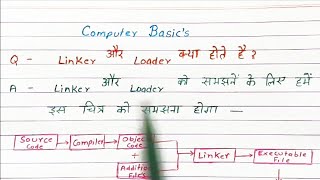 Computer Basic's
Q - Linker और Loader क्या होते है?
A - Linker और Loader को समझनें के लिए हमें
इस चित्र को समझना होगा —
Source Code
Compiler
Object Code
+
Additional Files
Linker
Executable File